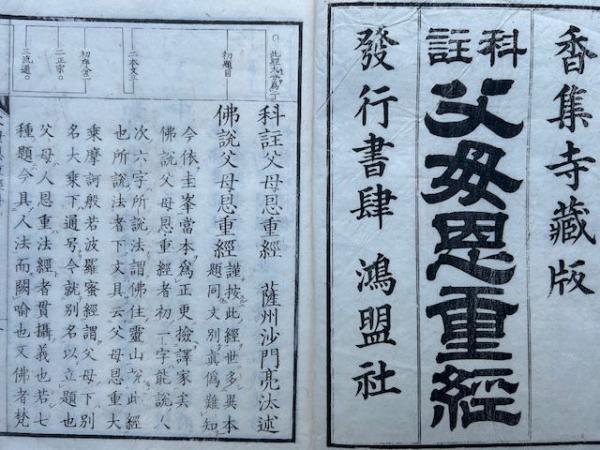 香集寺藏版
科註
父母恩重經
發行書肆 鴻盟社
科註父母恩重經 薩州沙門亮汰述
佛說父母恩重經 謹按此經世多異本
題同文別真偽難知
今依圭峯當本為正更撿譯家矣
佛說父母恩重經者初一字能說人
次六字所說法謂佛住靈山於此經
也所說法者下文具云父母恩重大
乘摩訶般若波羅蜜經謂父母下別
名大乘下通号今就別名以立題也
父母人恩重法經者貫攝義也若七
種題今具人法而闕喻也文佛者梵
初題目
二本文三
二正宗
三流通